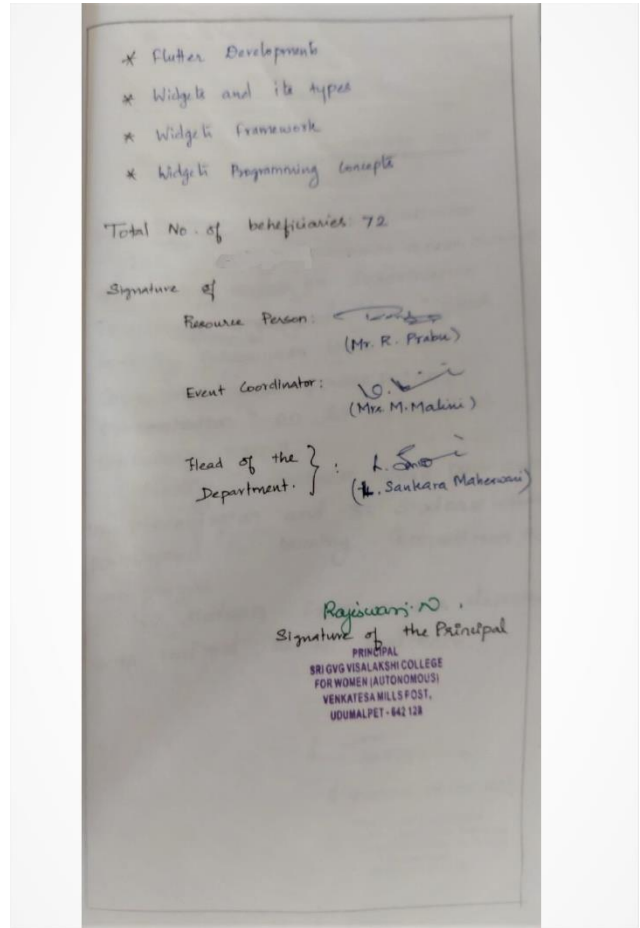 * Flutter Developments
* Widgets and its types
* Widgets Framework
* Widgets Programming Concepts
Total No. of beneficiaries 72
Signature of
Resource Person:
(Mr. R. Prabu)
Event Coordinator:
(Mrs. M. Malini)
Head of the
Department. } :
(L. Sankara Maheswari)
Rajeswari. N
Signature of the Principal
PRINCIPAL
SRI GVG VISALAKSHI COLLEGE
FOR WOMEN (AUTONOMOUS)
VENKATESA MILLS POST,
UDUMALPET - 642 128